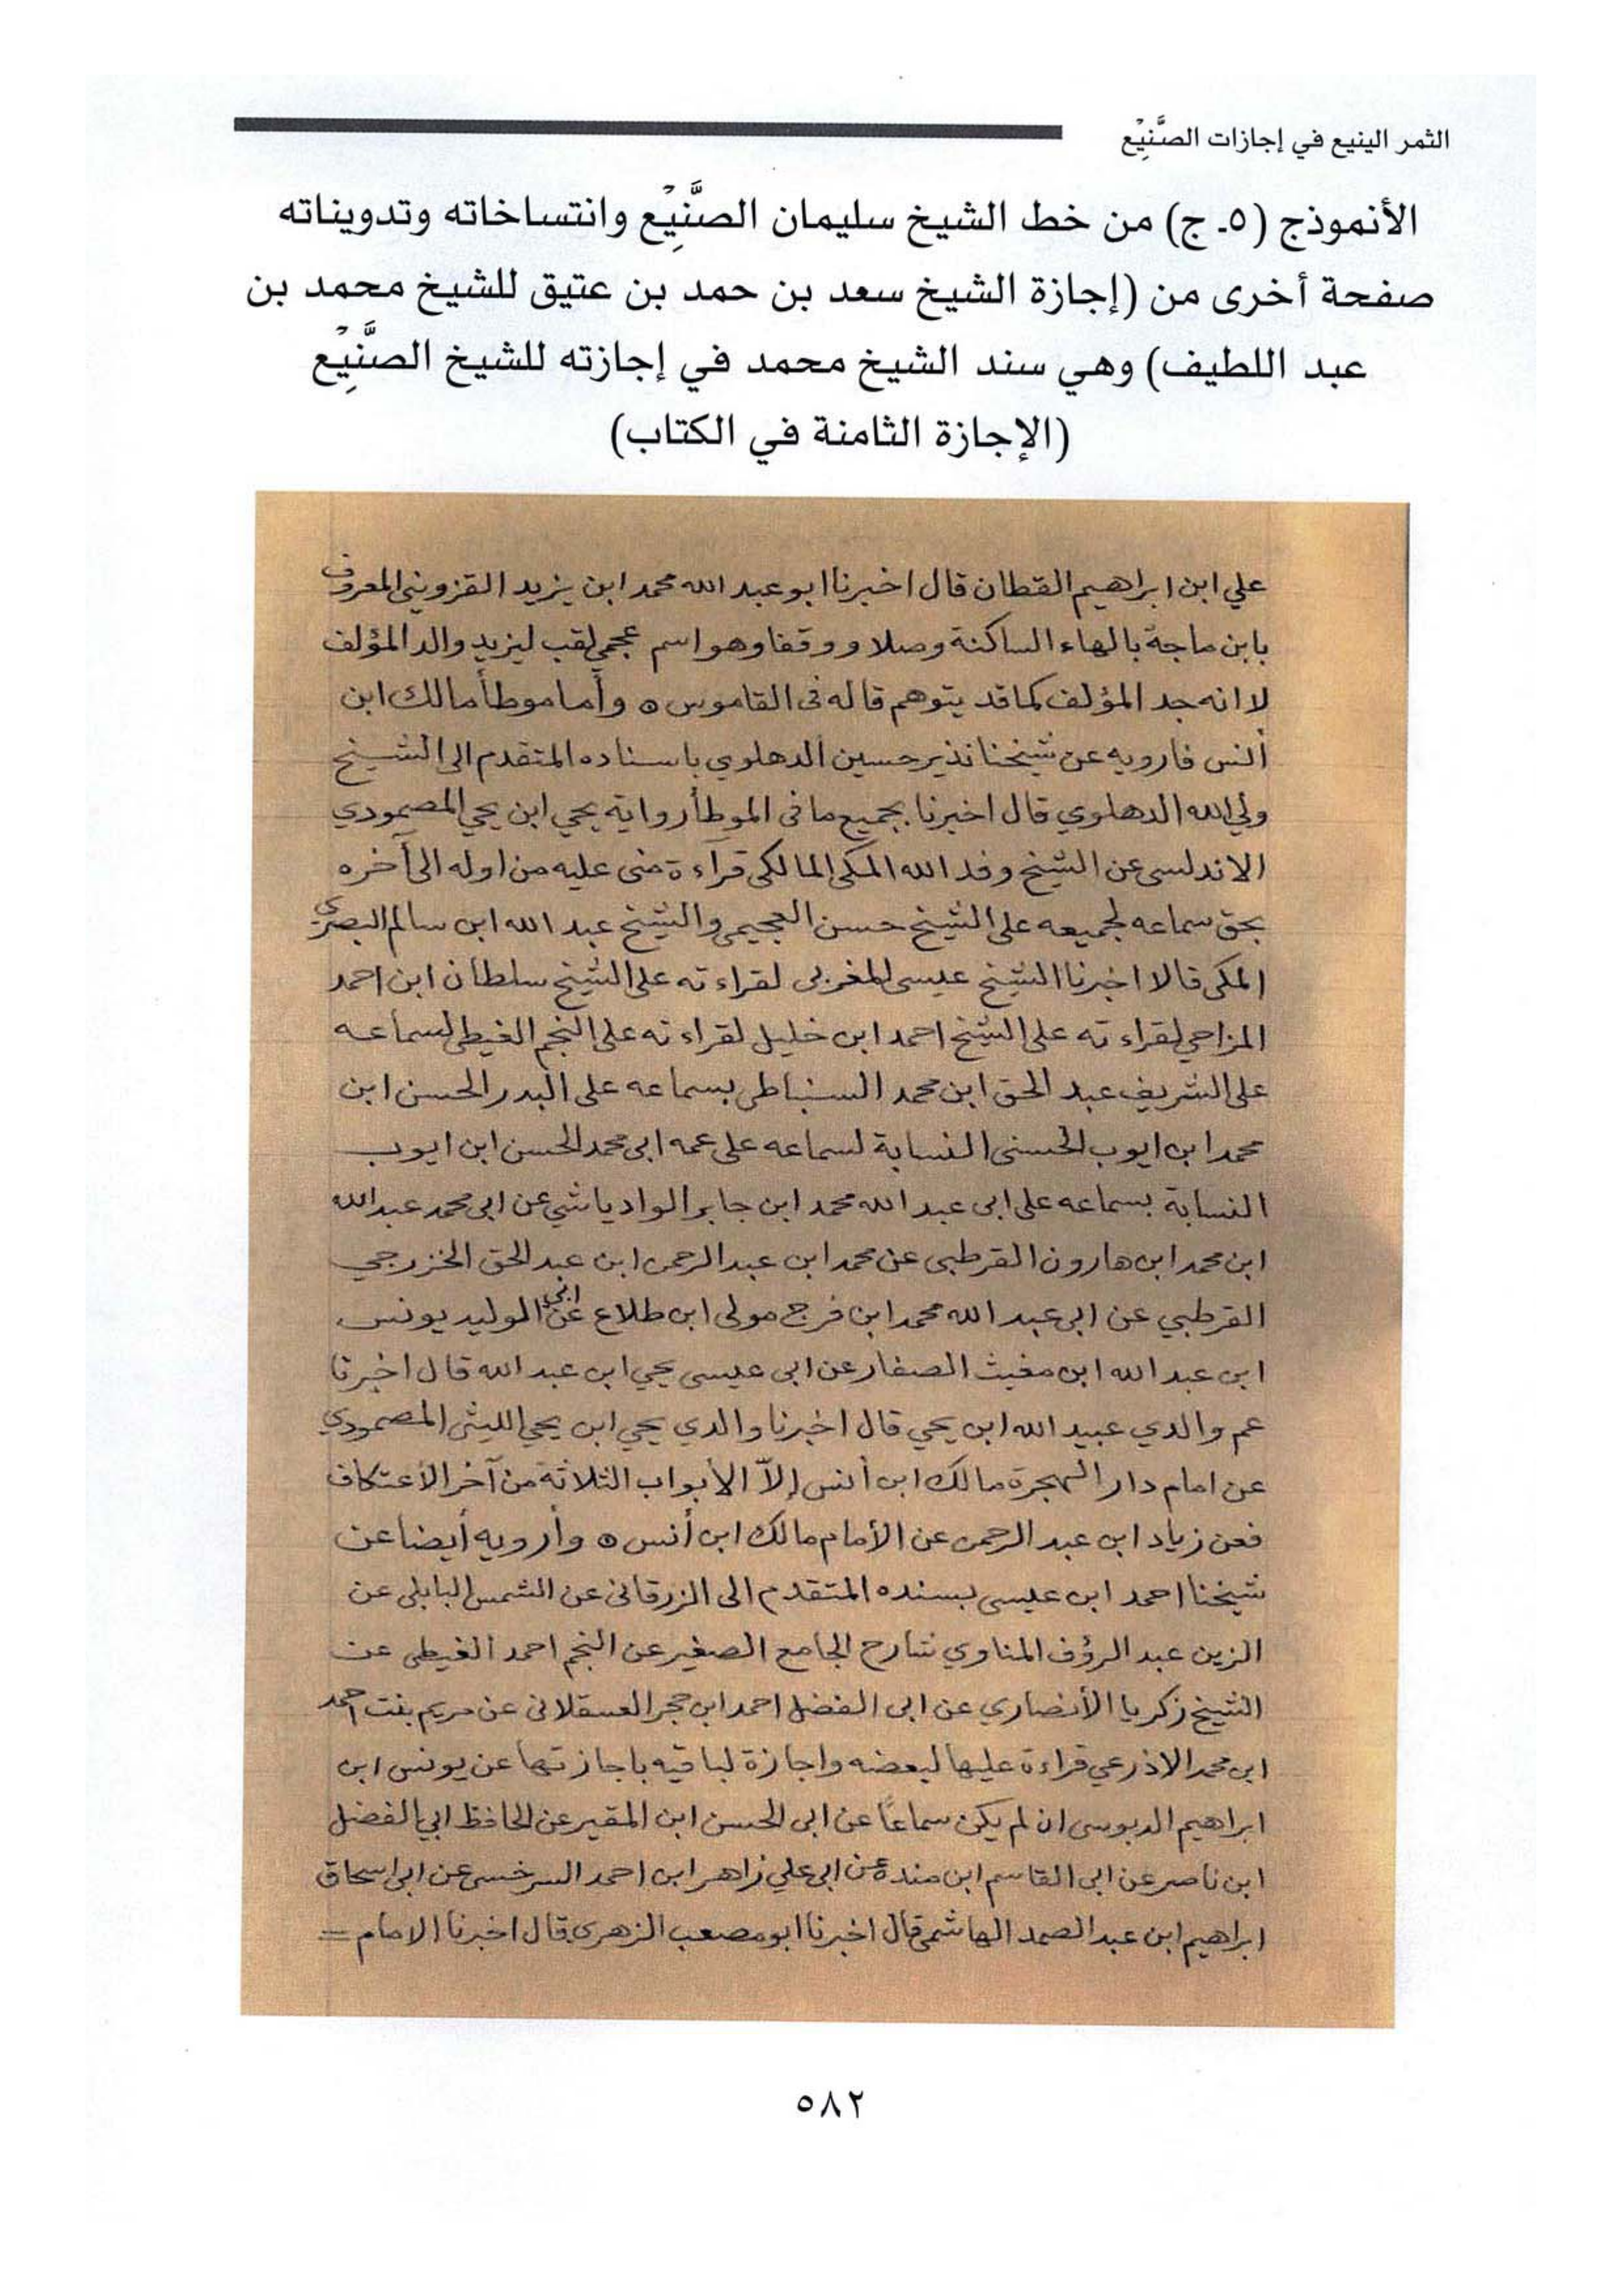 الثمر الينيع في إجازات الصَّنِيْع
الأنموذج (٥ـ ج) من خط الشيخ سليمان الصَّنِيْع وانتساخاته وتدويناته
صفحة أخرى من (إجازة الشيخ سعد بن حمد بن عتيق للشيخ محمد بن
عبد اللطيف) وهي سند الشيخ محمد في إجازته للشيخ الصَّنِيْع
(الإجازة الثامنة في الكتاب)
علي ابن ابراهيم القطان قال اخبرنا ابو عبد الله محمد ابن يزيد القزويني المعروف
بابن ماجة بالهاء الساكنة وصلا ووقفا وهو اسم عجمي لقب ليزيد والد المؤلف
لا انه جد المؤلف كما قد يتوهم قاله في القاموس ه وأما موطأ مالك ابن
أنس فارويه عن شيخنا نذير حسين الدهلوي باسناده المتقدم الى الشيخ
ولي الله الدهلوي قال اخبرنا بجميع ما في الموطأ رواية يحي ابن يحي المصمودي
الاندلسي عن الشيخ وفد الله المكي المالكي قرآءة مني عليه من اوله الى آخره
بحق سماعه لجميعه على الشيخ حسن العجيمي والشيخ عبد الله ابن سالم البصري
المكي قالا اخبرنا الشيخ عيسى المغربي لقراءته على الشيخ سلطان ابن احمد
المزاحي لقراءته على الشيخ احمد ابن خليل لقراءته على النجم الغيطي لسماعه
على الشريف عبد الحق ابن محمد السنباطي بسماعه على البدر الحسن ابن
محمد ابن ايوب الحسني النسابة لسماعه على عمه ابي محمد الحسن ابن ايوب
النسابة بسماعه على ابي عبد الله محمد ابن جابر الوادياشي عن ابي محمد عبد الله
ابن محمد ابن هارون القرطبي عن محمد ابن عبد الرحمن ابن عبد الحق الخزرجي
القرطبي عن ابي عبد الله محمد ابن فرج مولى ابن طلاع عن ابي الوليد يونس
ابن عبد الله ابن مغيث الصفار عن ابي عيسى يحي ابن عبد الله قال اخبرنا
عم والدي عبيد الله ابن يحي قال اخبرنا والدي يحي ابن يحي الليثي المصمودي
عن امام دار الهجرة مالك ابن أنس إلاّ الأبواب الثلاثة من آخر الأعتكاف
فعن زياد ابن عبد الرحمن عن الأمام مالك ابن أنس ه وأرويه أيضا عن
شيخنا احمد ابن عيسى بسنده المتقدم الى الزرقاني عن الشمس البابلي عن
الزين عبد الرؤف المناوي شارح الجامع الصغير عن النجم احمد الغيطي عن
الشيخ زكريا الأنصاري عن ابي الفضل احمد ابن حجر العسقلاني عن مريم بنت احمد
ابن محمد الاذرعي قراءة عليها لبعضه واجازة لباقيه باجازتها عن يونس ابن
ابراهيم الدبوسي ان لم يكن سماعاً عن ابي الحسن ابن المقير عن الحافظ ابي الفضل
ابن ناصر عن ابي القاسم ابن مندة عن ابي علي زاهر ابن احمد السرخسي عن ابي اسحاق
ابراهيم ابن عبد الصمد الهاشمي قال اخبرنا ابو مصعب الزهري قال اخبرنا الامام =
٥٨٢